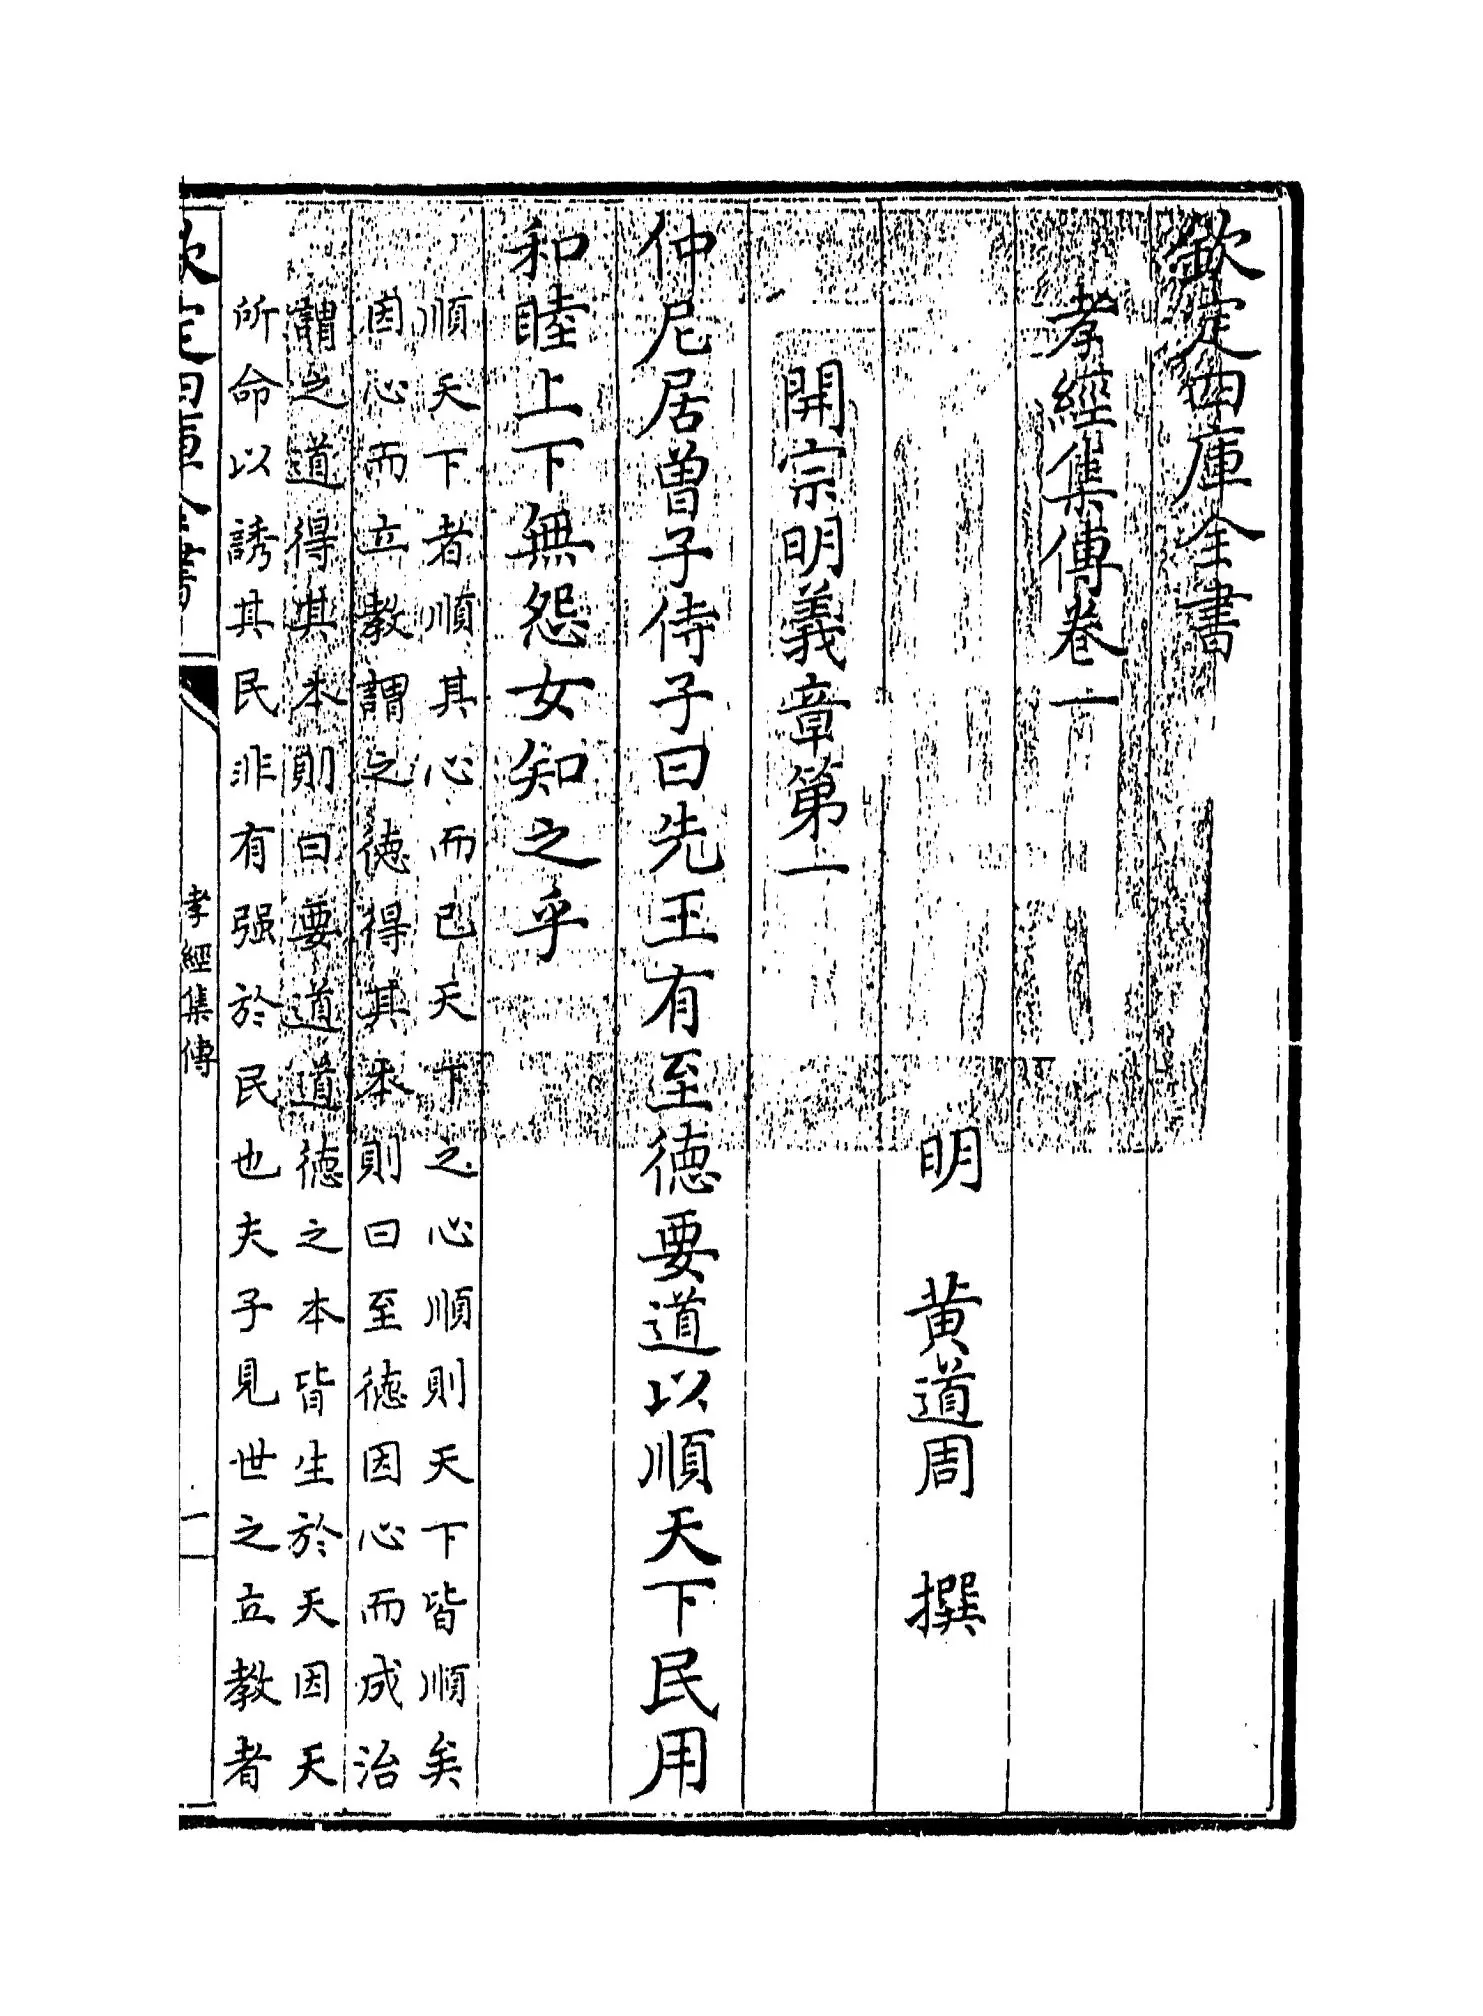 欽定四庫全書
孝經集傳卷一
明 黃道周 撰
開宗明義章第一
仲尼居曾子侍子曰先王有至德要道以順天下民用
和睦上下無怨女知之乎
順天下者順其心而已天下之心順則天下皆順矣
因心而立教謂之德得其本則曰至德因心而成治
謂之道得其本則曰要道道德之本皆生於天因天
所命以誘其民非有强於民也夫子見世之立教者
欽定四庫全書
孝經集傳
一